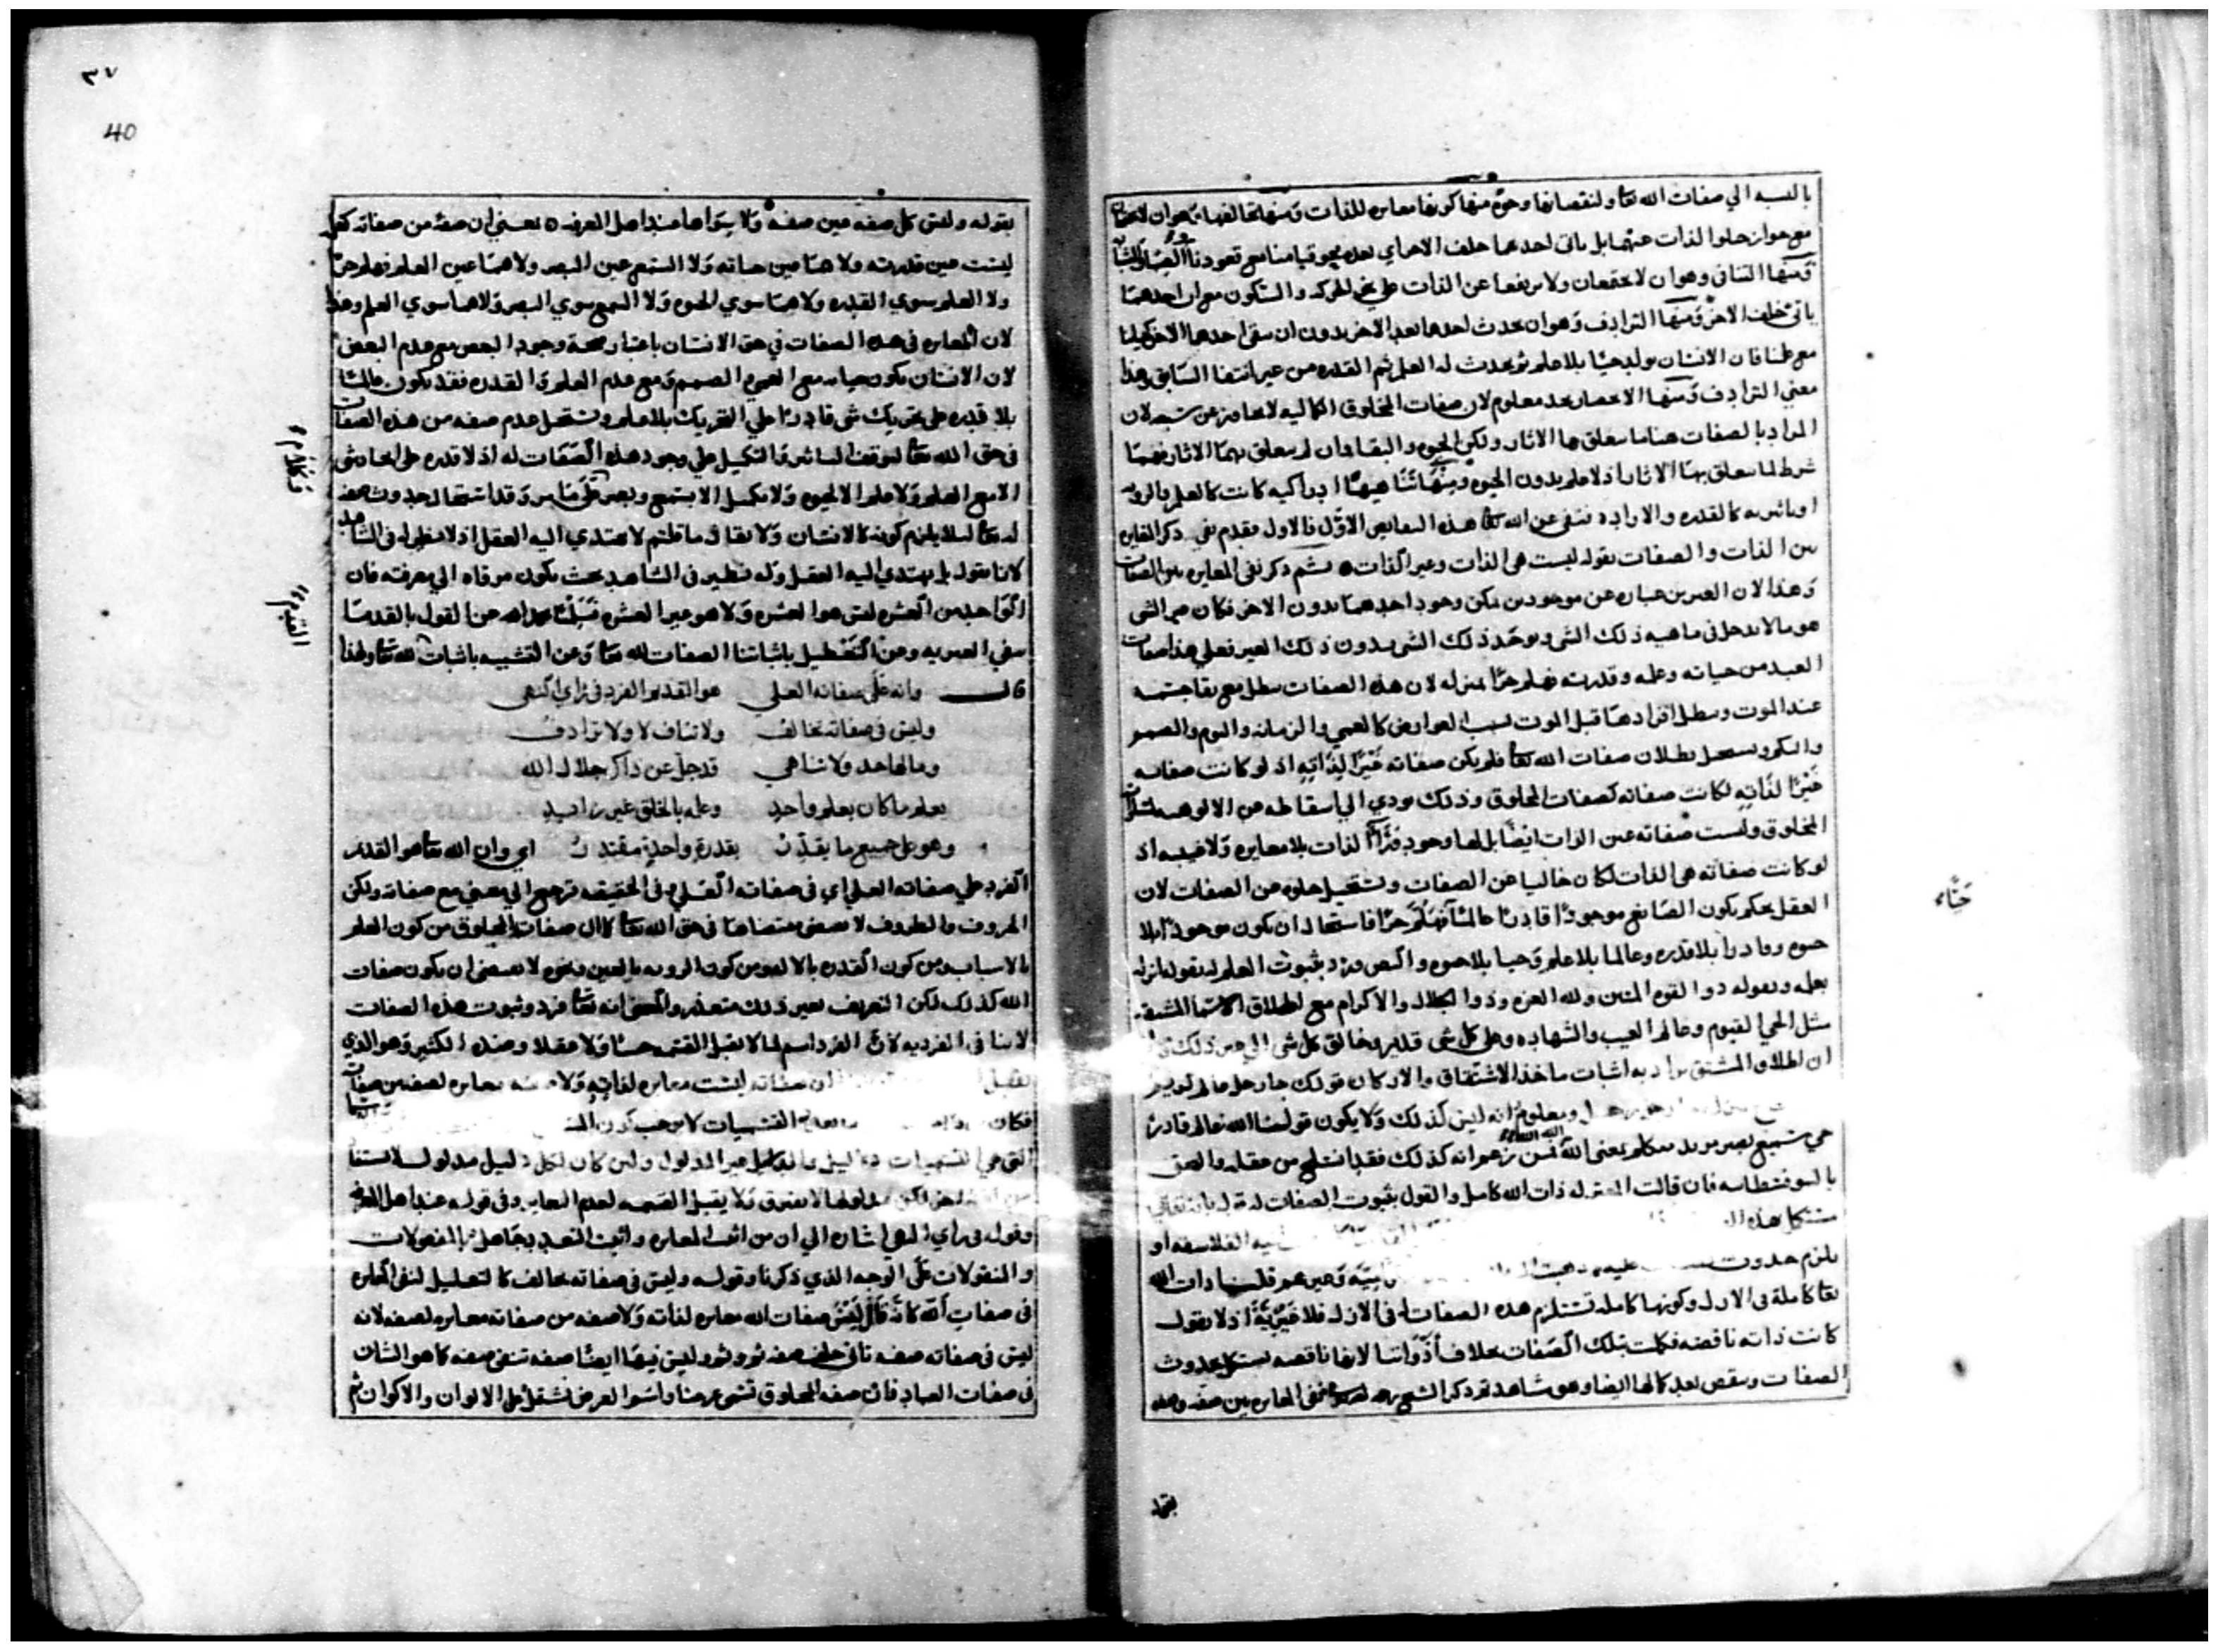 بالنسبه الي صفات الله تعا ولنقصانها وجوه منها كونها مغايره للذات ومنها تخالفها وهو ان
مع جواز خلوا الذات عنهما بل ياتى احدهما خلف الاخر اي بعده نحو قيامنا مع قعودنا
ومنها التنافى وهو ان لا يجتمعان ولا يرتفعا عن الذات على نحو الحركه والسكون مع ان احدهما
ياتى خلف الاخر ومنها الترادف وهو ان يحدث احدهما بعد الاخر بدون ان ينفى احدهما الاخر كحياتنا
مع علمنا فان الانسان يولد حيّا بلا علم ثم يحدث له العلم ثم القدره من غير انتفا السابق وهذا
معنى الترادف ومنها الانحصار بحد معلوم لان صفات المخلوق الكماليه لا تجاوز عن سبعه لان
المراد بالصفات هنا ما يتعلق بها الاثار ولكن الحيوه والبقا وان لم يتعلق بهما الاثار فهما
شرط لما يتعلق بها الاثار اذ لا علم بدون الحيوه ومنها تناهيها ادراكيه كانت كالعلم والرويه
او تاثيريه كالقدره والاراده فنفى عن الله تعا هذه النقايص الاوّل فالاول فقدم نفى ذكر التغاير
بين الذات والصفات بقوله ليست هى الذات وغير الذات ثم ذكر نفى المغايره بين الصفات
وهذا لان الغيرين عباره عن موجودين يمكن وجود احدهما بدون الاخر فكان غير الشى
هو ما لا يدخل فى ماهيه ذلك الشى ويوجد ذلك الشى بدون ذلك الغير فعلى هذا صفات
العبد من حياته وعلمه وقدرته فهلم جرّا بمنزله لان هذه الصفات تبطل مع بقا جسمه
عند الموت وتبطل افرادها قبل الموت بسبب العوارض كالعمى والزمانه والنوم والصمم
والبكم ويستحيل بطلان صفات الله تعا فلم يكن صفاته غَيْرًا لِذَاتِهِ اذ لو كانت صفاته
غَيْرًا لذاتِهِ لكانت صفاته كصفات المخلوق وذلك يودي الي اسقاطه من الالوهيه
المخلوق وليست صفاته عين الذات ايضًا بل لها وجود وراء الذات بلا مغايره ولا غيريه اذ
لو كانت صفاته هى الذات لكان خاليا عن الصفات ويستحيل خلوه من الصفات لان
العقل يحكم بكون الصانع موجودًا قادرًا عالمًا فهلم جرّا فاستحال ان يكون موجودًا بلا
حيوه وقادرا بلا قدره وعالما بلا علم وحيا بلا حيوه والنص ورد بثبوت العلم له بقوله انزله
بعلمه وبقوله ذو القوه المتين ولله العزه وذو الجلال والاكرام مع اطلاق الاسما المشتقه
مثل الحي القيوم وعالم الغيب والشهاده وعلى كل شى قدير وخالق كل شى الي غير ذلك
ان اطلاق المشتق يراد به اثبات ماخذ الاشتقاق والا لكان قولك جا رجل عالم
ومعلوم انه ليس كذلك ولا يكون قولنا الله عالم قادر
حي سميع بصير مريد متكلم بمعنى الله فمن زعم انه كذلك فقد انسلخ من عقله والتحق
بالسوفسطاييه فان قالت المعتزله ذات الله كامل والقول بثبوت الصفات له
الفلاسفه او
يلزم حدوث وغيرهم قلنا ذات الله
تعا كامله فى الازل وكونها كامله تستلزم هذه الصفات فى الازل فلا غَيْرِيَّةَ اذ لا يقول
كانت ذاته ناقصه فكملت بتلك الصفات بخلاف ذواتنا لانها ناقصه تستكمل بحدوث
الصفات وتنقص بعد كمالها ايضا وهو شاهد ثم ذكر الشيخ رحمه الله نفى المغايره بين صفه وصفه
بقوله
حيّا
٣٧
40
بقوله وليس كل صفه عين صفه ولا سواها عند اهل المعرفه يعني ان صفه من صفاته
ليست عين قدرته ولا هما عين حياته ولا السمع عين البصر ولا هما عين العلم فهلم جرّا
ولا العلم سوي القدره ولا هما سوي الحيوه ولا السمع سوي البصر ولا هما سوي العلم وهذا
لان المغايره فى هذه الصفات في حق الانسان باعتبار صحة وجود البعض مع عدم البعض
لان الانسان يكون حيا مع العمى والصمم ومع عدم العلم والقدره فقد يكون عالمًا
بلا قدره على تحريك شى قادرًا علي التحريك بلا علم ويستحيل عدم صفه من هذه الصفات
فى حق الله تعا لتوقف التاثير والتكميل علي وجود هذه الصفات له اذ لا قدره على ايجاد شى
الا مع العلم ولا علم الا بحيوه ولا تكميل الا بسمع وبصر على ما مر وقد استحال حدوث صفه
له تعا ليلا يلزم كونه كالانسان ولا يقال ما قلتم لا يهتدي اليه العقل اذ لا نظير له فى الشاهد
لانا نقول بل يهتدي اليه العقل وله نظير فى الشاهد بحيث يكون مرقاه الي معرفته فان
الواحد من العشره ليس هو العشره ولا هو غير العشره فسلمنا بحمد الله عن القول بالقدما
بنفي الغيريه وعن التعطيل باثباتنا الصفات لله تعا وعن التشبيه باثبات لله تعا ولهذا
قال وانه على صفاته العلي هو القديم الفرد فى راي النهى
وليس فى صفاته تخالف ولا تناف لا ولا ترادف
وما لها حد ولا تناهي قد جل عن ذاكم جلال الله
يعلم ما كان بعلم واحد وعلمه بالخلق غير زايد
وهو على جميع ما يقدر بقدرة واحدة مقتدر اي وان الله تعا هو القديم
الفرد علي صفاته العلي اي فى صفاته العلي وفى الحقيقه ترجع الي معنى مع صفاته ولكن
الحروف والظروف لا معنى مقتضاها فى حق الله تعا كما ان صفات المخلوق من كون العلم
بالاسباب ومن كون القدره بالاله ومن كون الرويه بالعين ونحوه لا يقتضى ان يكون صفات
الله كذلك لكن التعريف بغير ذلك متعذر والمعنى انه تعا فرد وثبوت هذه الصفات
لا ينافى الفرديه لان الفرد اسم لما لا يقبل القسمه حسًّا ولا عقلا وضده الكثير وهو الذي
يقبل ان صفاته ليست مغايره لذاته ولا صفه مغايره لصفه من صفاته
فكان التسميات لا يوجب كون
التى هي التسميات دليل والدليل غير المدلول ولين كان لكل دليل مدلول
مدلولها لا يفترق ولا يقبل القسمه لعدم التغاير وفى قوله عند اهل المعرفه
وقوله فى راي النهى اشاره الي ان من اثبت المغايره واثبت التعدد بجاهل بالمعقولات
والمنقولات على الوجه الذي ذكرنا وقوله وليس فى صفاته تخالف كالتعليل لنفى المغايره
فى صفات الله كانه قال ليس صفات الله مغايره لذاته ولا صفه من صفاته مغايره لصفه لانه
ليس فى صفاته صفه تاتى خلف صفه ثم وثم وليس فيها ايضا صفه تنفى صفه كما هو الشان
فى صفات العباد فان صفه المخلوق تسمى عرضا واسم العرض يشتمل على الالوان والاكوان ثم